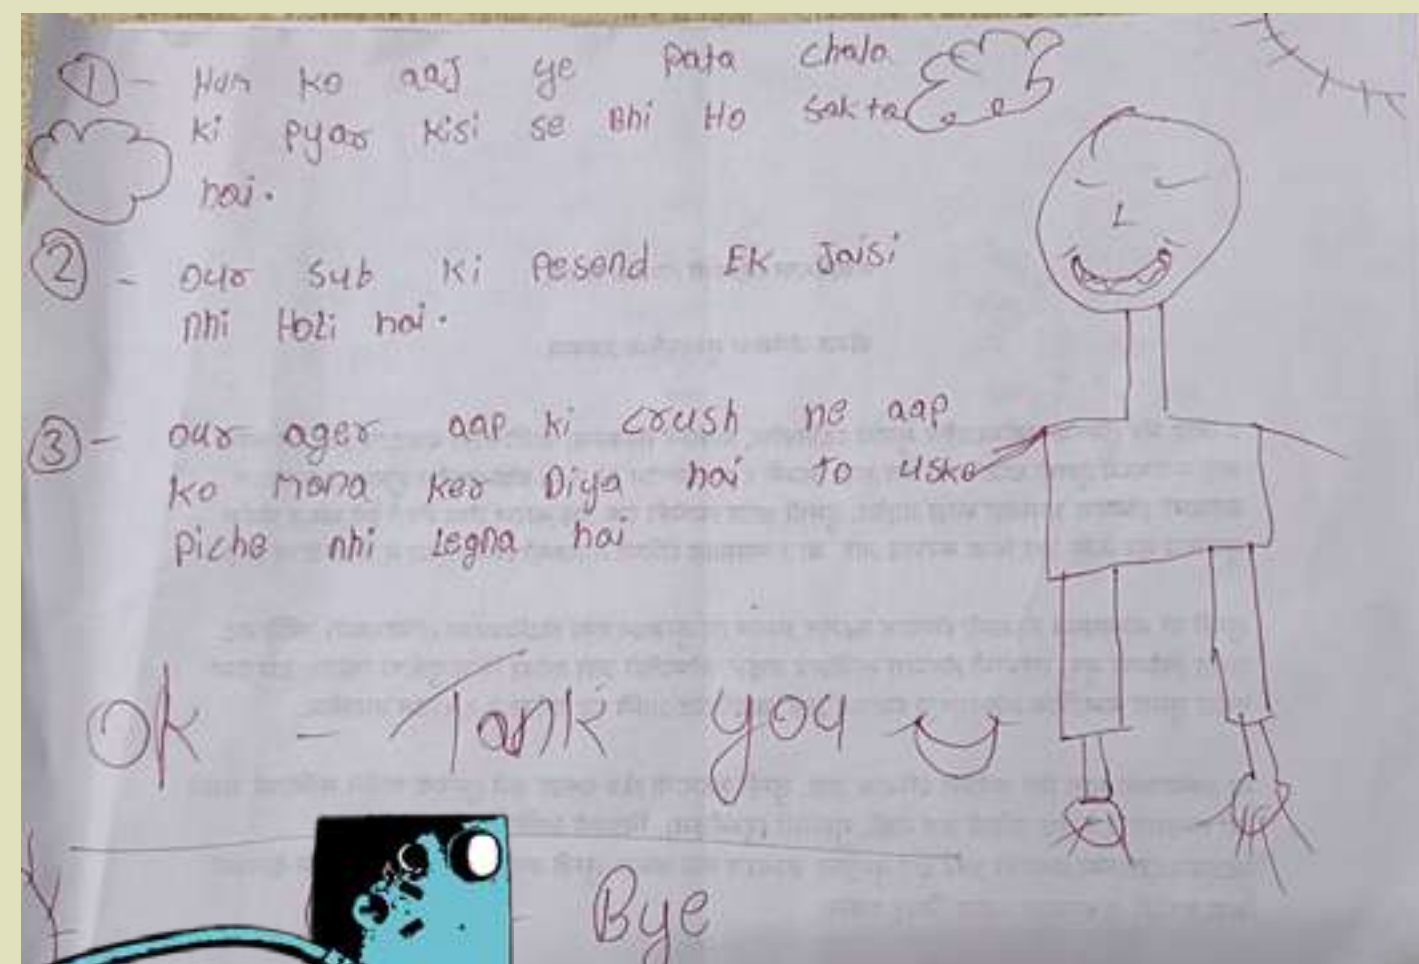 ① - Ham ko aaj ye pata chala
ki pyar kisi se Bhi Ho sakta
hai.
② - our sub ki Pesend EK Jaisi
nhi Hoti hai.
③ - our ager aap ki crush ne aap
ko mana ker Diya hai to uske
Piche nhi Legna hai
OK - Tank you
Bye